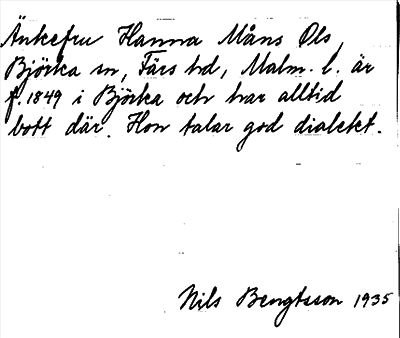 Änkefru Hanna Måns Ols,
Björka sn, Färs hd, Malm. l. är
f. 1849 i Björka och har alltid
bott där. Hon talar god dialekt.
Nils Bengtsson 1935